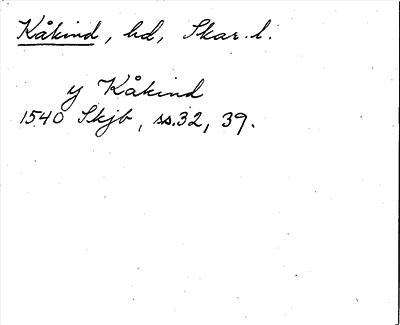 Kåkind, hd, Skar. l.
y Kåkind
1540 Skjb, ss. 32, 39.